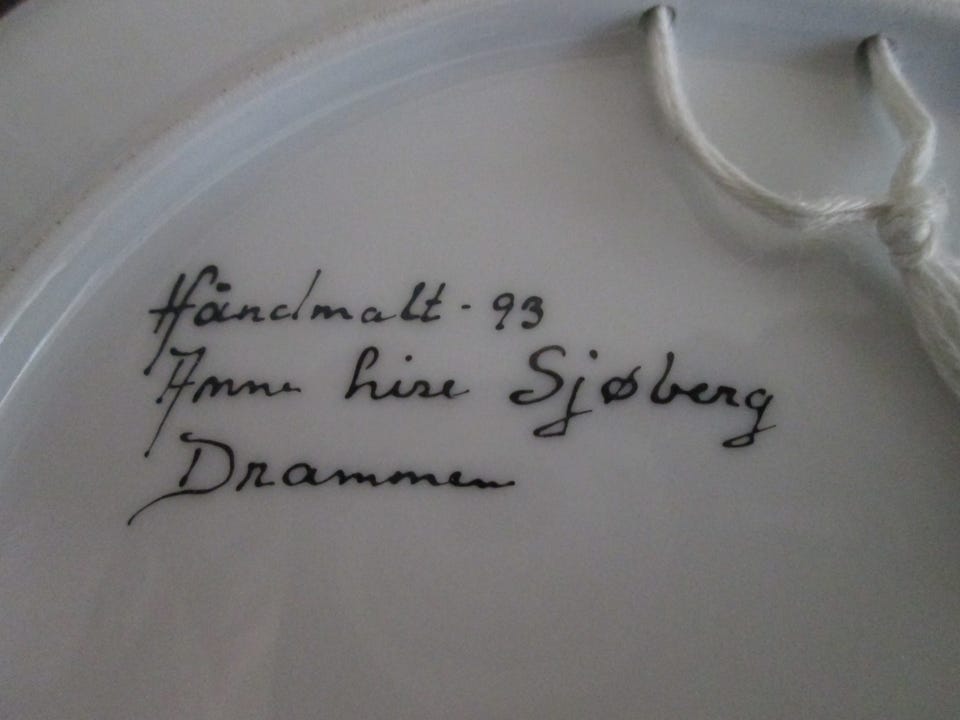 Håndmalt - 93
Anne Lise Sjøberg
Drammen